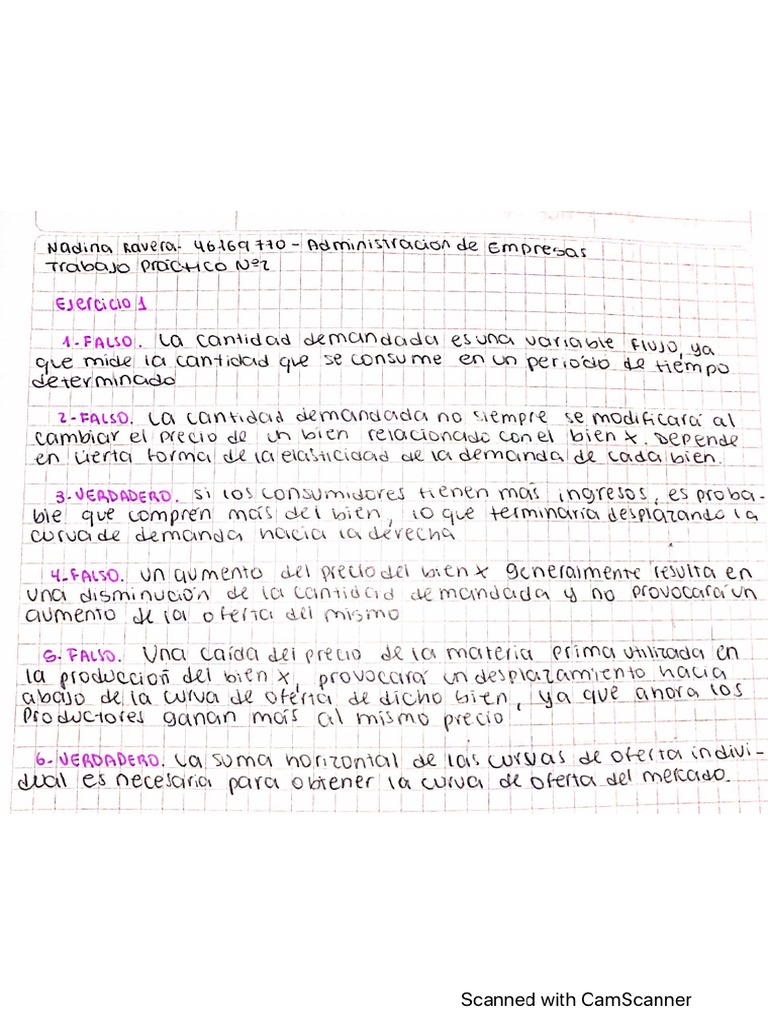 Nadina Ravera- 46169770 - Administracion de Empresas
Trabajo Práctico Nº2
Ejercicio 1
1-FALSO. La cantidad demandada es una variable flujo, ya
que mide la cantidad que se consume en un periodo de tiempo
determinado
2-FALSO. La cantidad demandada no siempre se modificará al
cambiar el precio de un bien relacionado con el bien x. Depende
en cierta forma de la elasticidad de la demanda de cada bien.
3-VERDADERO. Si los consumidores tienen más ingresos, es proba-
ble que compren más del bien, lo que terminaría desplazando la
curva de demanda hacia la derecha
4-FALSO. Un aumento del precio del bien x generalmente resulta en
una disminución de la cantidad demandada y no provocará un
aumento de la oferta del mismo
5-FALSO. Una caída del precio de la materia prima utilizada en
la producción del bien x, provocará un desplazamiento hacia
abajo de la curva de oferta de dicho bien, ya que ahora los
productores ganan más al mismo precio
6-VERDADERO. La suma horizontal de las curvas de oferta indivi-
dual es necesaria para obtener la curva de oferta del mercado.
Scanned with CamScanner